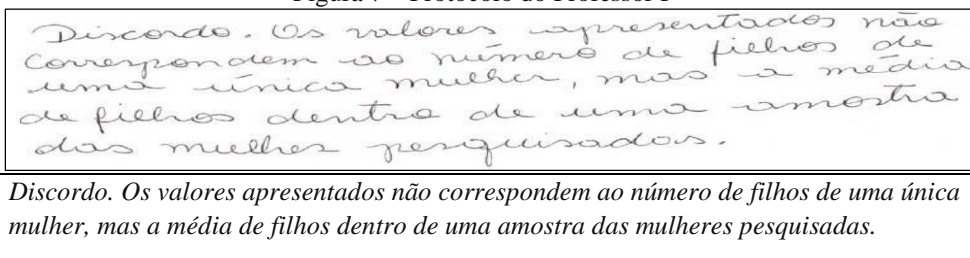 Discordo. Os valores apresentados não
correspondem ao número de filhos de
uma única mulher, mas a média
de filhos dentro de uma amostra
das mulher pesquisadas.
Discordo. Os valores apresentados não correspondem ao número de filhos de uma única
mulher, mas a média de filhos dentro de uma amostra das mulheres pesquisadas.